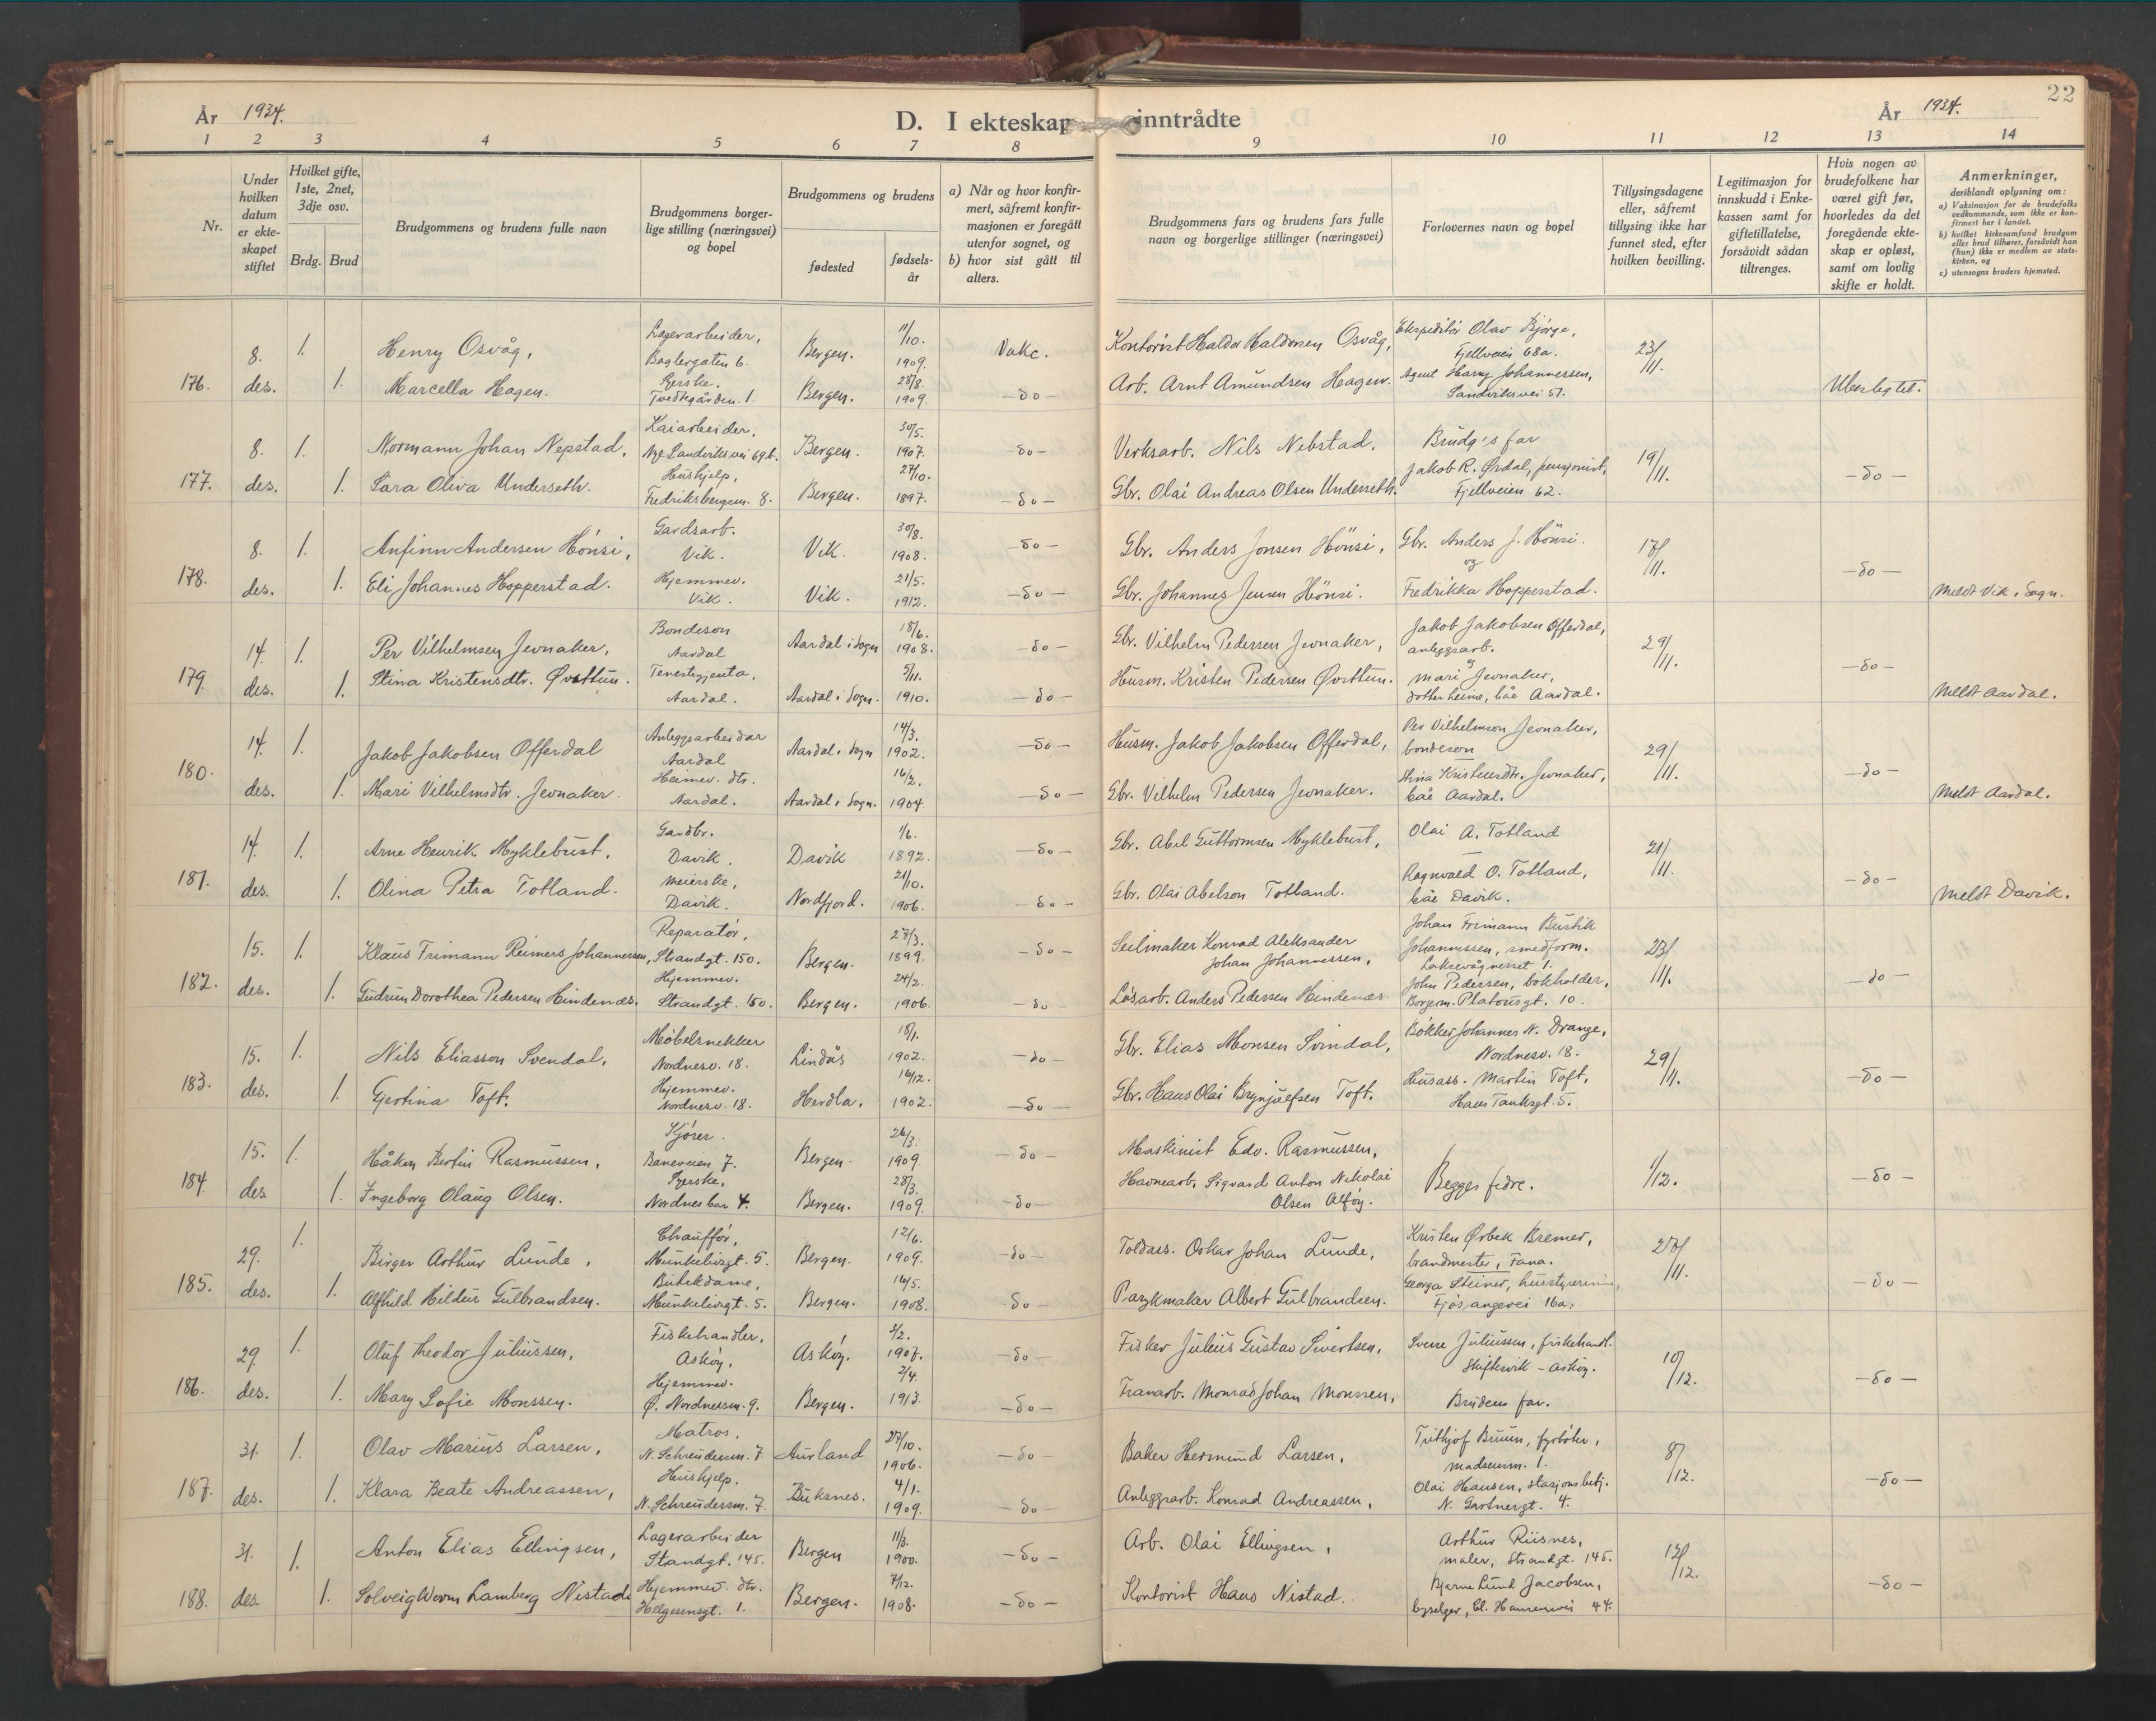 År 1934.
D. I ekteskap inntrådte
År 1934.
22
1 2 3 4 5 6 7 8 9 10 11 12 13 14
Nr.
Under hvilken datum er ekteskapet stiftet
Hvilket gifte, 1ste, 2net, 3dje osv.
Brdg. Brud
Brudgommens og brudens fulle navn
Brudgommens borgerlige stilling (næringsvei) og bopel
Brudgommens og brudens
fødested
fødselsår
a) Når og hvor konfirmert, såfremt konfirmasjonen er foregått utenfor sognet, og
b) hvor sist gått til alters.
Brudgommens fars og brudens fars fulle navn og borgerlige stillinger (næringsvei)
Forlovernes navn og bopel
Tillysingsdagene eller, såfremt tillysing ikke har funnet sted, efter hvilken bevilling.
Legitimasjon for innskudd i Enkekassen samt for giftetillatelse, forsåvidt sådan tiltrenges.
Hvis nogen av brudefolkene har været gift før, hvorledes da det foregående ekteskap er opløst, samt om lovlig skifte er holdt.
Anmerkninger,
deriblandt oplysning om:
a) Vaksinasjon for de brudefolks vedkommende, som ikke er konfirmert her i landet.
b) hvilket kirkesamfund brudgom eller brud tilhører, forsåvidt han (hun) ikke er medlem av statskirken, og
c) utensogns bruders hjemsted.
176. 8. des. 1. Henry Osvåg, Lagerarbeider, Baglergaten 6. Bergen. 11/10. 1909. Vakc. Kontorist Haldor Haldorsen Osvåg, Ekspeditör Olav Bjørge, Fjellveien 68a. 23/11.
1. Marcella Hagen. Syerske. Tvedtegården. 1. Bergen. 28/8. 1909. -do- Arb. Arnt Amundsen Hagen. Agent Harry Johannessen, Sandviksvei 51. Uberegtet.
177. 8. des. 1. Normann Johan Nepstad, Kaiarbeider, Nye Sandviksvei 69b. Bergen. 30/5. 1907. -do- Verksarb. Nils Nebstad. Brudg's far 19/11.
1. Sara Oliva Underseth. Hushjelp, Fredriksbergsm. 8. Bergen. 27/10. 1897. -do- Gbr. Olai Andreas Olsen Underseth. Jakob R. Ørdal, pensjonist, Fjellveien 62. -do-
178. 8. des. 1. Anfinn Andersen Hönsi, Gardsarb. Vik. Vik. 30/8. 1908. -do- Gbr. Anders Jonsen Hönsi, Gbr. Anders J. Hönsi. og 17/11.
1. Eli Johannes Hopperstad. Hjemmev. Vik. Vik. 21/5. 1912. -do- Gbr. Johannes Jensen Hönsi. Fredrikka Hopperstad. -do- Meldt Vik, Sogn.
179. 14. des. 1. Per Vilhelmsen Jevnaker, Bondeson Aardal Aardal i Sogn 18/6. 1908. -do- Gbr. Vilhelm Pedersen Jevnaker, Jakob Jakobsen Offerdal, anleggsarb. og 29/11.
1. Stina Kristensdtr. Øvsttun. Tenestgjenta, Aardal. Aardal i Sogn. 5/11. 1910. -do- Husm. Kristen Pedersen Øvsttun. Mari Jevnaker, dotter heime, båe Aardal. -do- Meldt Aardal.
180. 14. des. 1. Jakob Jakobsen Offerdal Anleggsarbeidar Aardal Aardal i Sogn 14/3. 1902. -do- Husm. Jakob Jakobsen Offerdal, Per Vilhelmson Jevnaker, bondeson 29/11.
1. Mari Vilhelmsdtr. Jevnaker. Heimev. dtr. Aardal. Aardal i Sogn. 16/2. 1904 -do- Gbr. Vilhelm Pedersen Jevnaker. Stina Kristensdtr. Jevnaker, båe Aardal. -do- Meldt Aardal.
181. 14. des. 1. Arne Henrik Myklebust, Gardbr. Davik. Davik 1/6. 1892. -do- Gbr. Abel Guttormsen Myklebust, Olai A. Totland 21/11.
1. Olina Petra Totland. Meierske, Davik. Nordfjord. 21/10. 1906. -do- Gbr. Olai Abelson Totland. Ragnvald O. Totland, båe Davik. -do- Meldt Davik.
182. 15. des. 1. Klaus Trimann Reimers Johannessen, Reparatör, Strandgt. 150. Bergen. 27/3. 1899. -do- Seilmaker Konrad Aleksander Johan Johannessen, Johan Frimann Johannessen, smedform. Laksevågneset 1. 23/11.
1. Gudrun Dorothea Pedersen Hindenæs. Hjemmev. Strandgt. 150. Bergen. 24/2. 1906. -do- Lösarb. Anders Pedersen Hindenæs. John Pedersen, bokholder, Borgerm. Platousgt. 10. -do-
183. 15. des. 1. Nils Eliasson Svendal, Møbelsnekker Nordnesv. 18. Lindås 18/1. 1902. -do- Gbr. Elias Monsen Svindal, Bökker Johannes N. Drange, Nordnesv. 18. 29/11.
1. Gjertina Toft. Hjemmev. Nordnesv. 18. Herdla. 16/12. 1902. -do- Gbr. Hans Olai Brynjulfsen Toft. Husass. Martin Toft, Hans Tanksgt. 5. -do-
184. 15. des. 1. Håkon Bertin Rasmussen, Kjører. Baneveien 7. Bergen. 26/3. 1909. -do- Maskinist Edv. Rasmussen, Begges fedre. 1/12.
1. Ingeborg Olaug Olsen. Syerske, Nordnesbar 4. Bergen. 28/3. 1909. -do- Havnearb. Sigvard Anton Nikolai Olsen Alføy. -do-
185. 29. des. 1. Birger Arthur Lunde, Chaufför, Munkelivsgt. 5. Bergen. 12/6. 1909. -do- Toldass. Oskar Johan Lunde, Kristen Ørbek Bremer, brandmester, Fana. 27/11.
1. Alfhild Hildur Gulbrandsen. Butikdame, Munkelivsgt. 5. Bergen. 16/5. 1908. do- Parykmaker Albert Gulbrandsen. Georga Steiner, husstyrerinne, Fjösangervei 16a. -do-
186. 29. des. 1. Oluf Theodor Juliussen, Fiskehandler, Asköy, Asköy. 3/2. 1907. -do- Fisker Julius Gustav Sivertsen, Sverre Juliussen, fiskehandl. Skiftesvik - Asköy. 10/12.
1. Mary Sofie Monssen. Hjemmev. Ø. Nordnessm. 9. Bergen. 2/4. 1913. -do- Tranarb. Monrad Johan Monssen, Brudens far. -do-
187. 31. des. 1. Olav Marius Larsen, Matros, N. Schreudersm. 7 Aurland 27/10. 1906. -do- Baker Hermund Larsen, Trithjof Bruun, fyrböter, Madsensm. 1. 8/12.
1. Klara Beate Andreassen, Hushjelp. N. Schreudersm. 7. Buksnes. 4/1. 1909. -do- Anleggsarb. Konrad Andreassen, Olai Hansen, stasjonsbetj. N. Gartnergt. 4. -do-
188. 31. des 1. Anton Elias Ellingsen, Lagerarbeider Standgt. 145. Bergen 11/3. 1900. -do- Arb. Olai Ellingsen, Arthur Riisnes, maler, Strandgt. 145. 12/12.
1. Solveig Worm Lamberg Nistad Hjemmev. dtr. Helgesensgt. 1. Bergen. 7/12. 1908. -do- Kontorist Hans Nistad. Bjarne Lund Jacobsen, byselger, Cl. Hansensvei 44. -do-